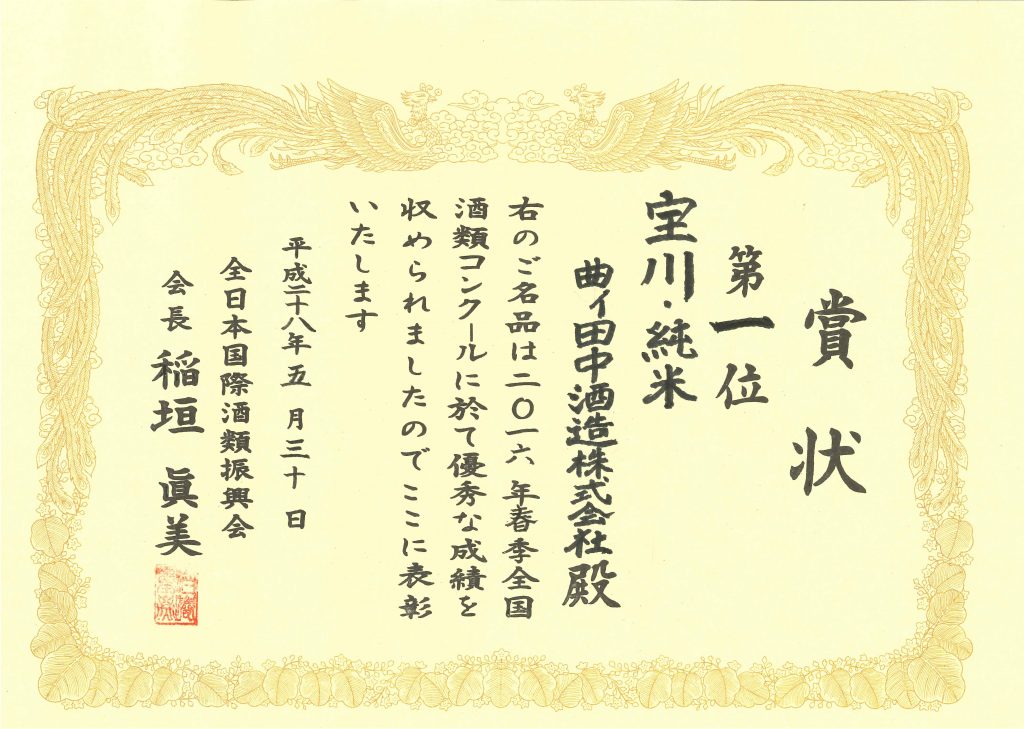 賞状
第一位
宝川・純米
曲イ田中酒造株式会社殿
右のご名品は二〇一六年春季全国
酒類コンクールに於て優秀な成績を
収められましたのでここに表彰
いたします
平成二十八年五月三十日
全日本国際酒類振興会
会長 稲垣眞美